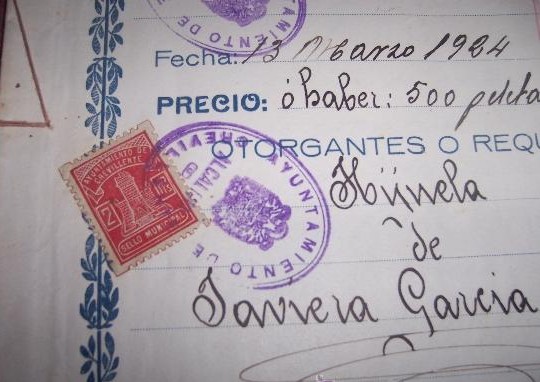 AMIENTO DE
Fecha: 13 Marzo 1924
PRECIO: ó haber: 500 peseta
OTORGANTES O REQU
AYUNTAMIENTO DE
CREVILLENTE
2
SELLO MUNICIPAL
AYUNTAMIENTO DE
Hijuela
de
Javiera Garcia